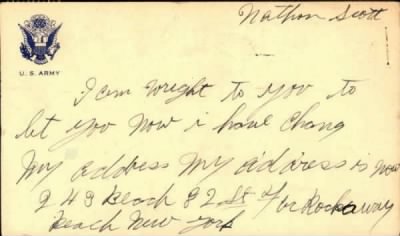 Nathon Scott
U. S. ARMY
I am wright to you to
let you now i have chang
my address my address is now
243 Beach 82 St Rockaway
Beach New York